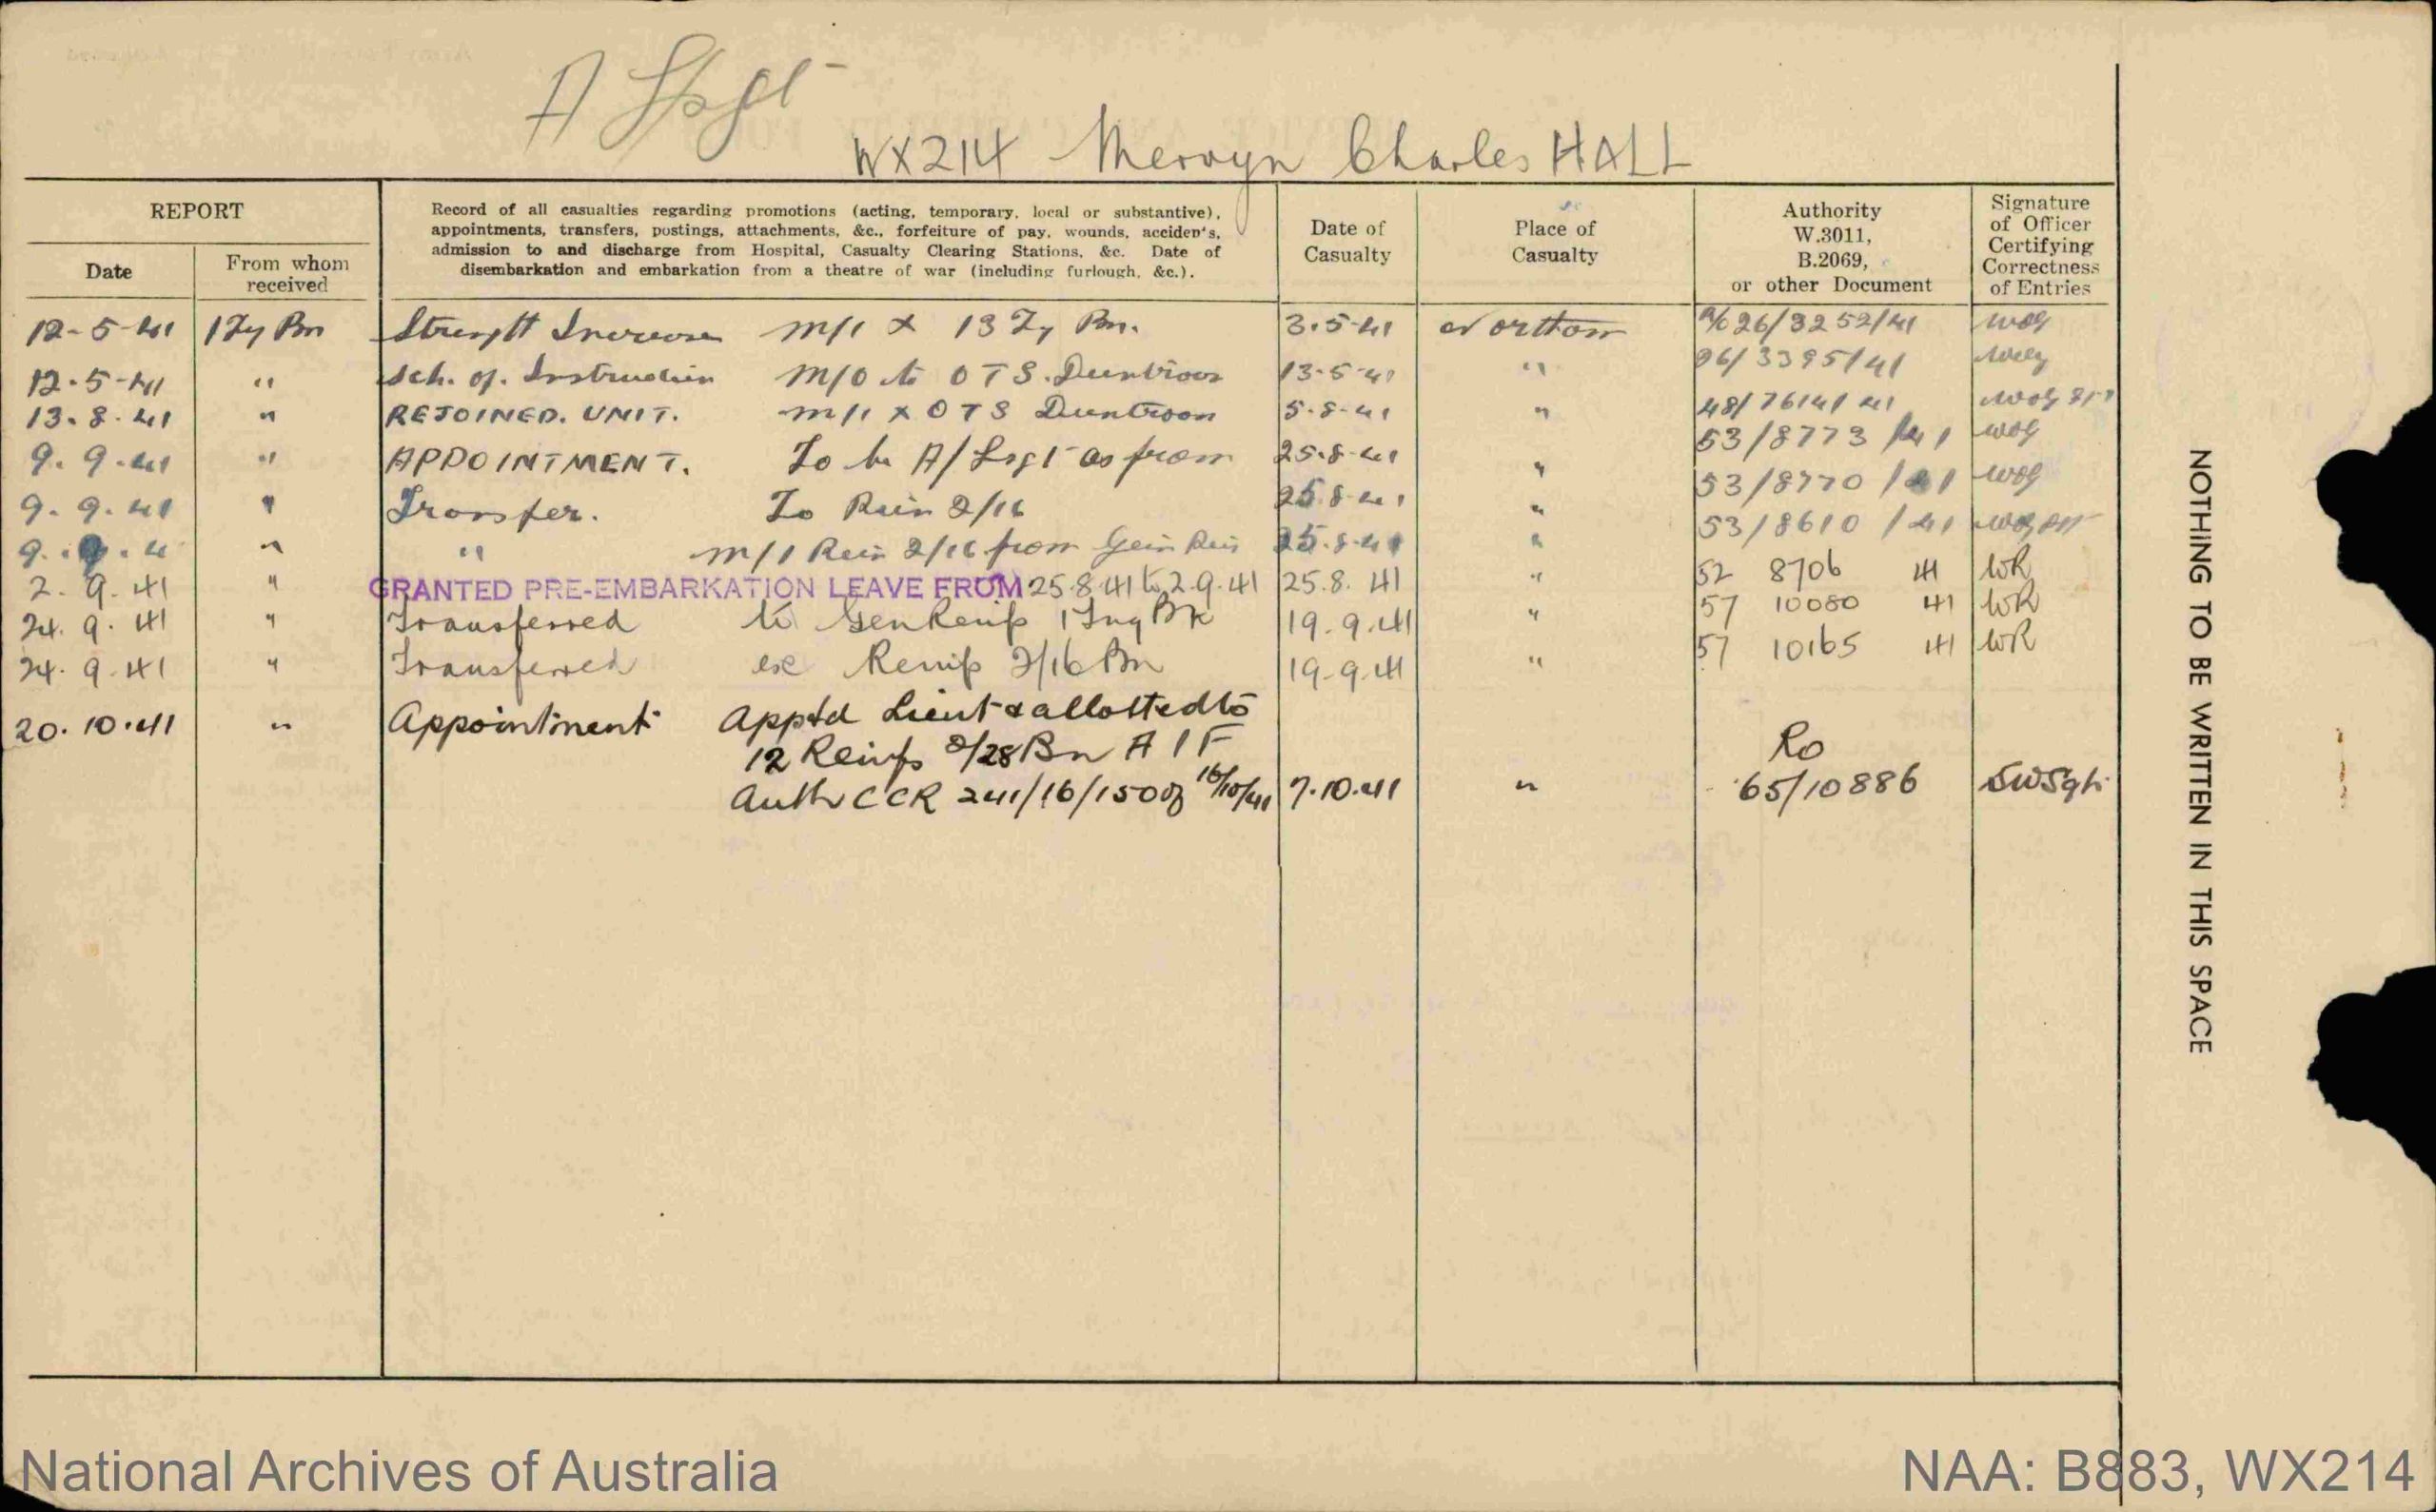 A/Sgt
WX214 Mervyn Charles HALL
REPORT
Date
From whom
received
Record of all casualties regarding promotions (acting, temporary, local or substantive),
appointments, transfers, postings, attachments, &c., forfeiture of pay, wounds, acciden's,
admission to and discharge from Hospital, Casualty Clearing Stations, &c. Date of
disembarkation and embarkation from a theatre of war (including furlough, &c.).
Date of
Casualty
Place of
Casualty
Authority
W.3011,
B.2069,
or other Document
Signature
of Officer
Certifying
Correctness
of Entries
12-5-41 1 Tg Bn Strength Increase M/1 X 13 Tg Bn. 3.5.41 Northam 26/3252/41
12.5-41 " Sch. of. Instruction M/O to OTS. Duntroon 13-5-41 " 26/3395/41
13.8.41 " REJOINED. UNIT. M/1 X OTS Duntroon 5.8-41 " 48/7614/41
9.9.41 " APPOINTMENT. To be A/Sgt as from 25.8.41 " 53/8773/41
9.9.41 " Transfer. To Rein 2/16 25.8.41 " 53/8770/41
9.9.4 " " M/1 Rein 2/16 from Gen Rein 25.8.41 " 53/8610/41
2.9.41 " GRANTED PRE-EMBARKATION LEAVE FROM 25.8.41 to 2.9.41 25.8.41 " 52 8706 41 WR
24.9.41 " Transferred to Gen Reinfs 1 Tng Bn 19.9.41 " 57 10080 41 WR
24.9.41 " Transferred ex Reinfs 2/16 Bn 19-9.41 " 57 10165 41 WR
20.10.41 " Appointment Apptd Lieut & allotted to
12 Reinfs 2/28 Bn A I F Ro
Auth CCR 241/16/150 of 16/10/41 7.10.41 " 65/10886 SWSgt.
NOTHING TO BE WRITTEN IN THIS SPACE
National Archives of Australia
NAA: B883, WX214